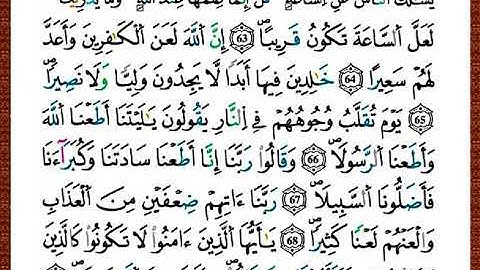 لَعَلَّ ٱلسَّاعَةَ تَكُونُ قَرِيبًا ٦٣ إِنَّ ٱللَّهَ لَعَنَ ٱلْكَٰفِرِينَ وَأَعَدَّ
لَهُمْ سَعِيرًا ٦٤ خَٰلِدِينَ فِيهَا أَبَدًا لَّا يَجِدُونَ وَلِيًّا وَلَا نَصِيرًا
٦٥ يَوْمَ تُقَلَّبُ وُجُوهُهُمْ فِى ٱلنَّارِ يَقُولُونَ يَٰلَيْتَنَا أَطَعْنَا ٱللَّهَ
وَأَطَعْنَا ٱلرَّسُولَا ٦٦ وَقَالُوا۟ رَبَّنَا إِنَّا أَطَعْنَا سَادَتَنَا وَكُبَرَآءَنَا
فَأَضَلُّونَا ٱلسَّبِيلَا ٦٧ رَبَّنَا ءَاتِهِمْ ضِعْفَيْنِ مِنَ ٱلْعَذَابِ
وَٱلْعَنْهُمْ لَعْنًا كَثِيرًا ٦٨ يَٰٓأَيُّهَا ٱلَّذِينَ ءَامَنُوا۟ لَا تَكُونُوا۟ كَٱلَّذِينَ